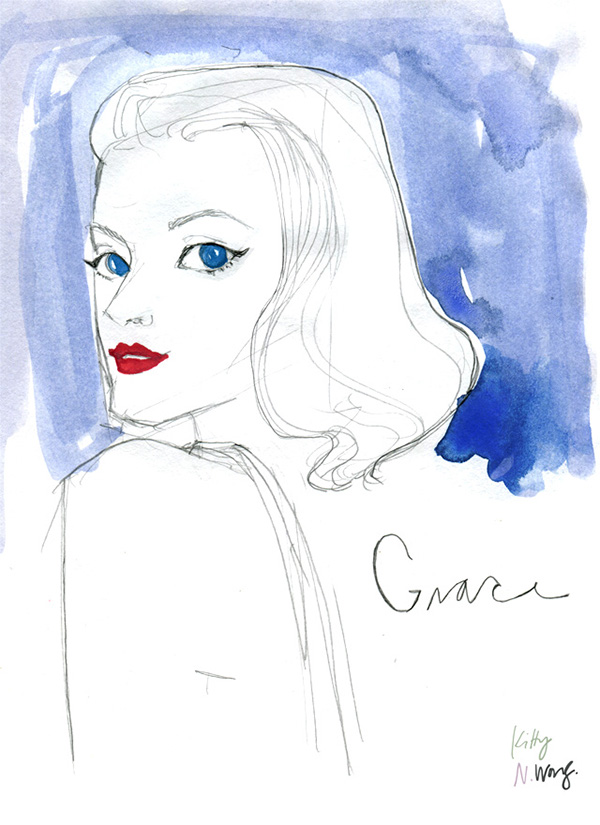 Grace
Kitty
N. Wong.